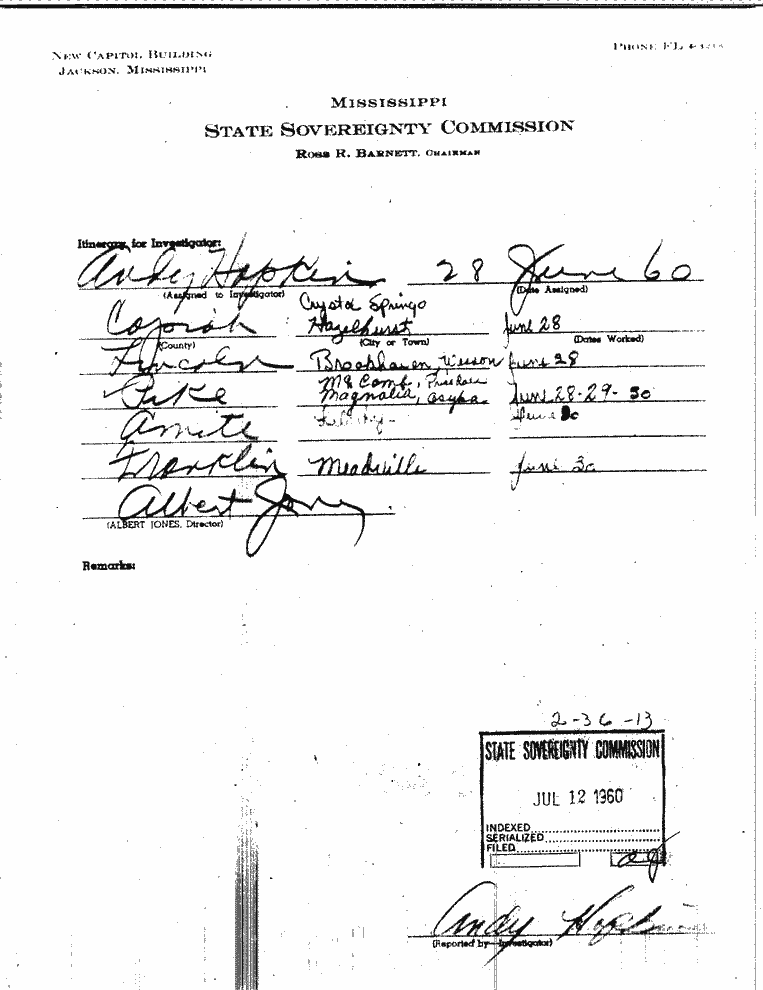 NEW CAPITOL BUILDING
JACKSON, MISSISSIPPI
PHONE FL
MISSISSIPPI
STATE SOVEREIGNTY COMMISSION
ROSS R. BARNETT, CHAIRMAN
Itinerary for Investigator:
Andy Hopkins 28 June 60
(Assigned to Investigator) (Date Assigned)
Crystal Springs
Copiah Hazelhurst June 28
(County) (City or Town) (Dates Worked)
Lincoln Brookhaven, Wesson June 28
Mc Comb,
Pike Magnolia, Osyka June 28-29-30
Amite June 30
Franklin Meadville June 30
Albert Jones
(ALBERT JONES, Director)
Remarks:
2-36-13
STATE SOVEREIGNTY COMMISSION
JUL 12 1960
INDEXED
SERIALIZED
FILED
aj
Andy Hopkins
(Reported by Investigator)